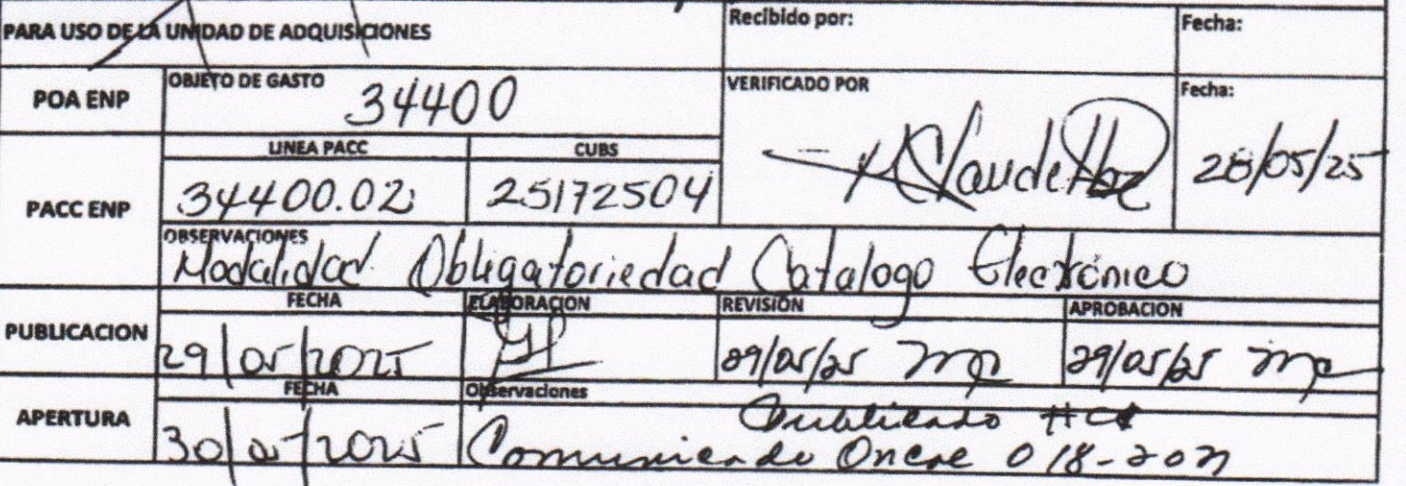 PARA USO DE LA UNIDAD DE ADQUISICIONES
Recibido por:
Fecha:
POA ENP
OBJETO DE GASTO
34400
VERIFICADO POR
Fecha:
28/05/25
PACC ENP
LINEA PACC
CUBS
34400.02
25172504
OBSERVACIONES
Modalidad Obligatoriedad Catalogo Electrónico
PUBLICACION
FECHA
ELABORACION
REVISIÓN
APROBACION
29/05/2025
29/05/25
29/05/25
APERTURA
FECHA
Observaciones
30/05/2025
Publicado
Comunicado Oncae 018-